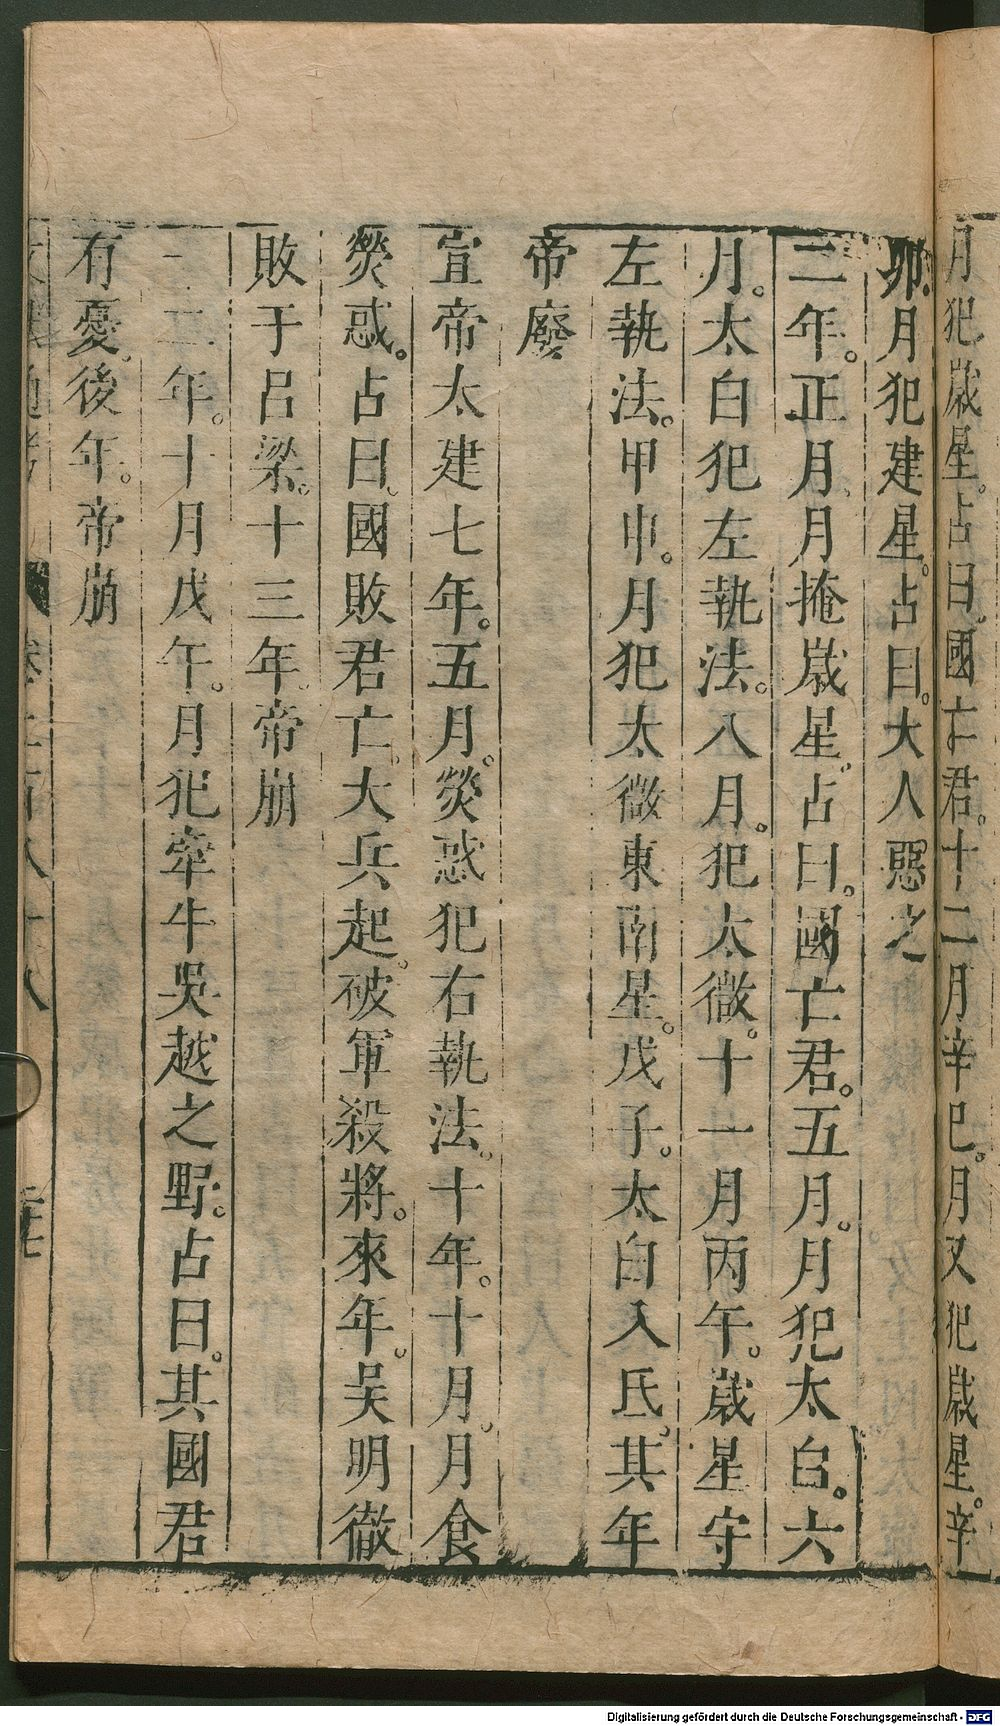 月犯歲星。占曰。國亡君。十二月辛巳。月又犯歲星。辛
卯。月犯建星。占曰。大人惡之
二年。正月。月掩歲星。占曰。國亡君。五月。月犯太白。六
月。太白犯左執法。八月。犯太微。十一月丙午。歲星守
左執法。甲申。月犯太微東南星。戊子。太白入氐。其年
帝廢
宣帝太建七年。五月。熒惑犯右執法。十年。十月。月食
熒惑。占曰。國敗君亡。大兵起。破軍殺將。來年。吳明徹
敗于呂梁。十三年。帝崩
十二年。十月戊午。月犯牽牛吳越之野。占曰。其國君
有憂。後年。帝崩
通考 卷二百八十八 三七
Digitalisierung gefördert durch die Deutsche Forschungsgemeinschaft - DFG